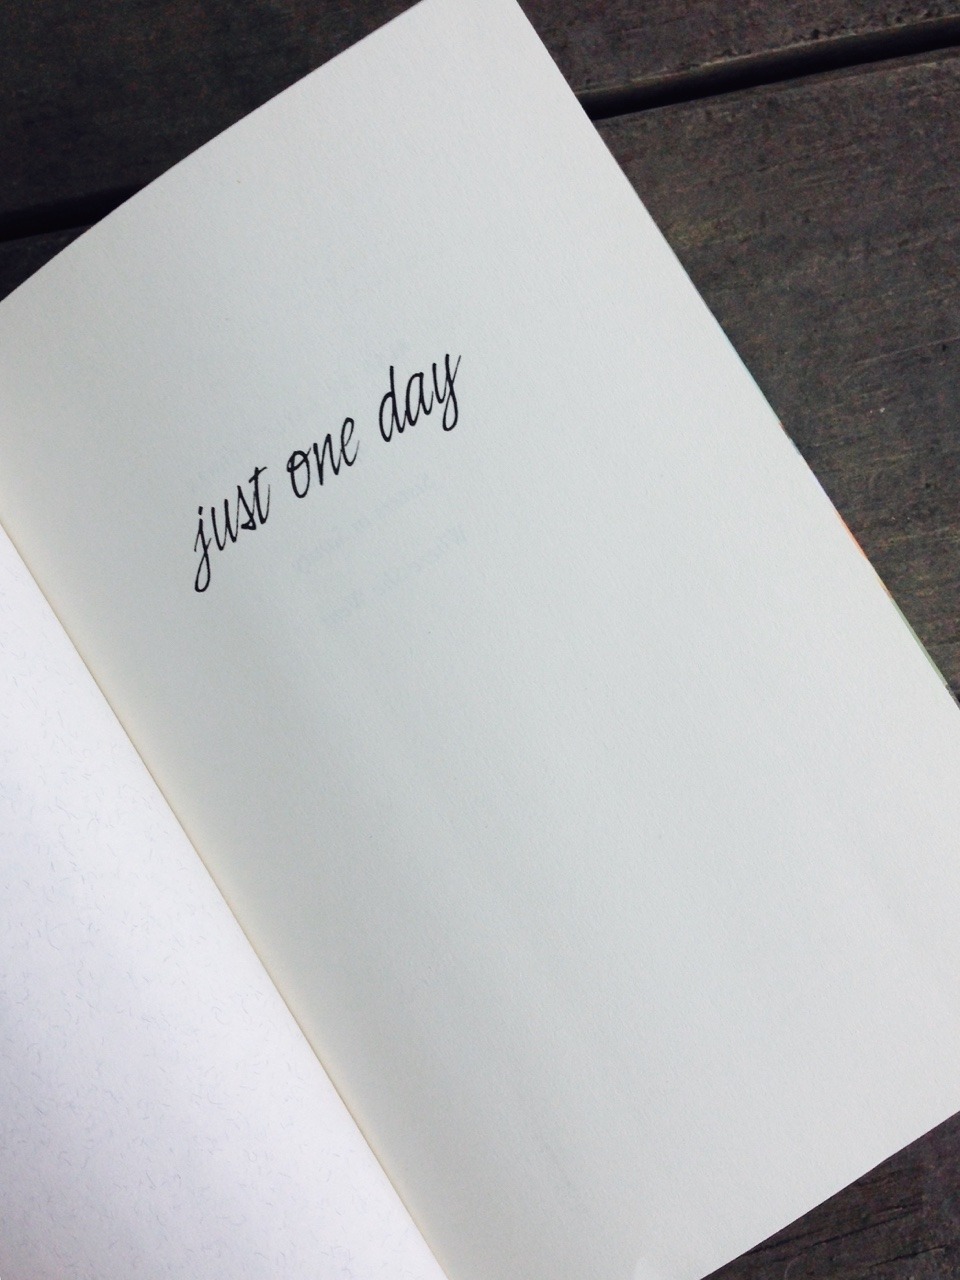 just one day